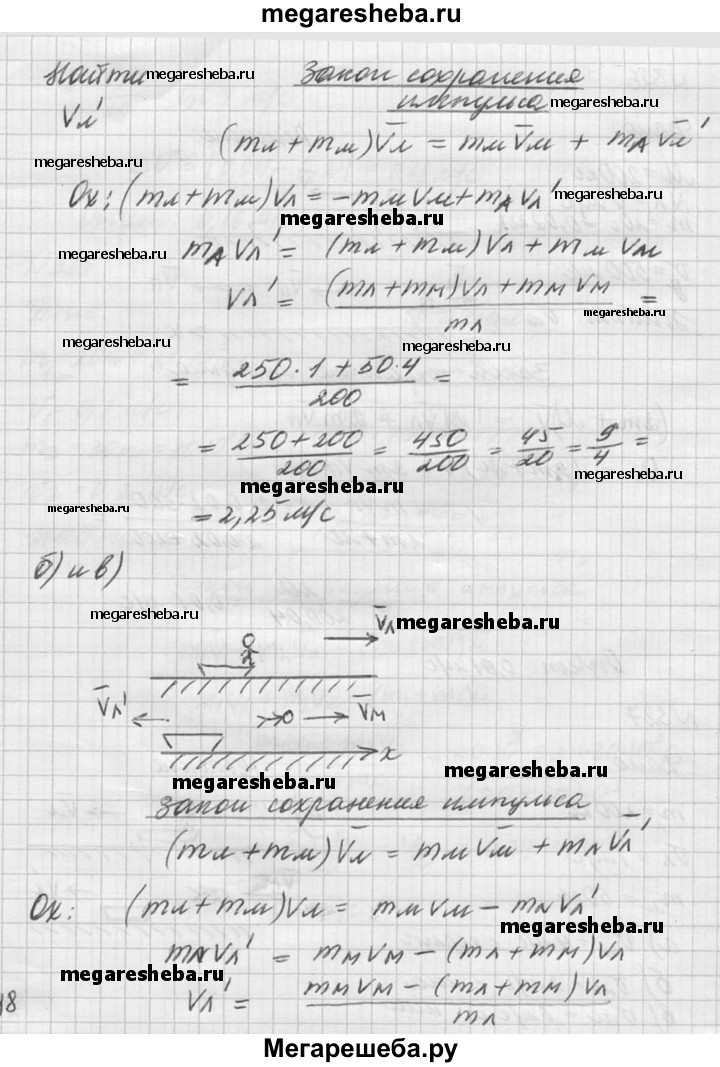 megaresheba.ru
Найти megaresheba.ru Закон сохранения
импульса megaresheba.ru
Vл'
(mл + mм)V̅л = mмV̅м + mлV̅л'
megaresheba.ru
Ox: (mл + mм)Vл = -mмVм + mлVл'
megaresheba.ru
megaresheba.ru mлVл' = (mл + mм)Vл + mмVм
Vл' = (mл + mм)Vл + mмVм / mл =
megaresheba.ru
megaresheba.ru
= 250·1 + 50·4 / 200 =
= 250 + 200 / 200 = 450/200 = 45/20 = 9/4 =
megaresheba.ru
megaresheba.ru
megaresheba.ru = 2,25 м/с
б) и в)
megaresheba.ru V̅л megaresheba.ru
V̅л' V̅м
x
megaresheba.ru
megaresheba.ru
закон сохранения импульса
(mл + mм)V̅л = mмV̅м + mлV̅л'
Ox: (mл + mм)Vл = mмVм - mлVл'
megaresheba.ru
mлVл' = mмVм - (mл + mм)Vл
megaresheba.ru
18 Vл' = mмVм - (mл + mм)Vл / mл
megaresheba.ru
Мегарешеба.ру